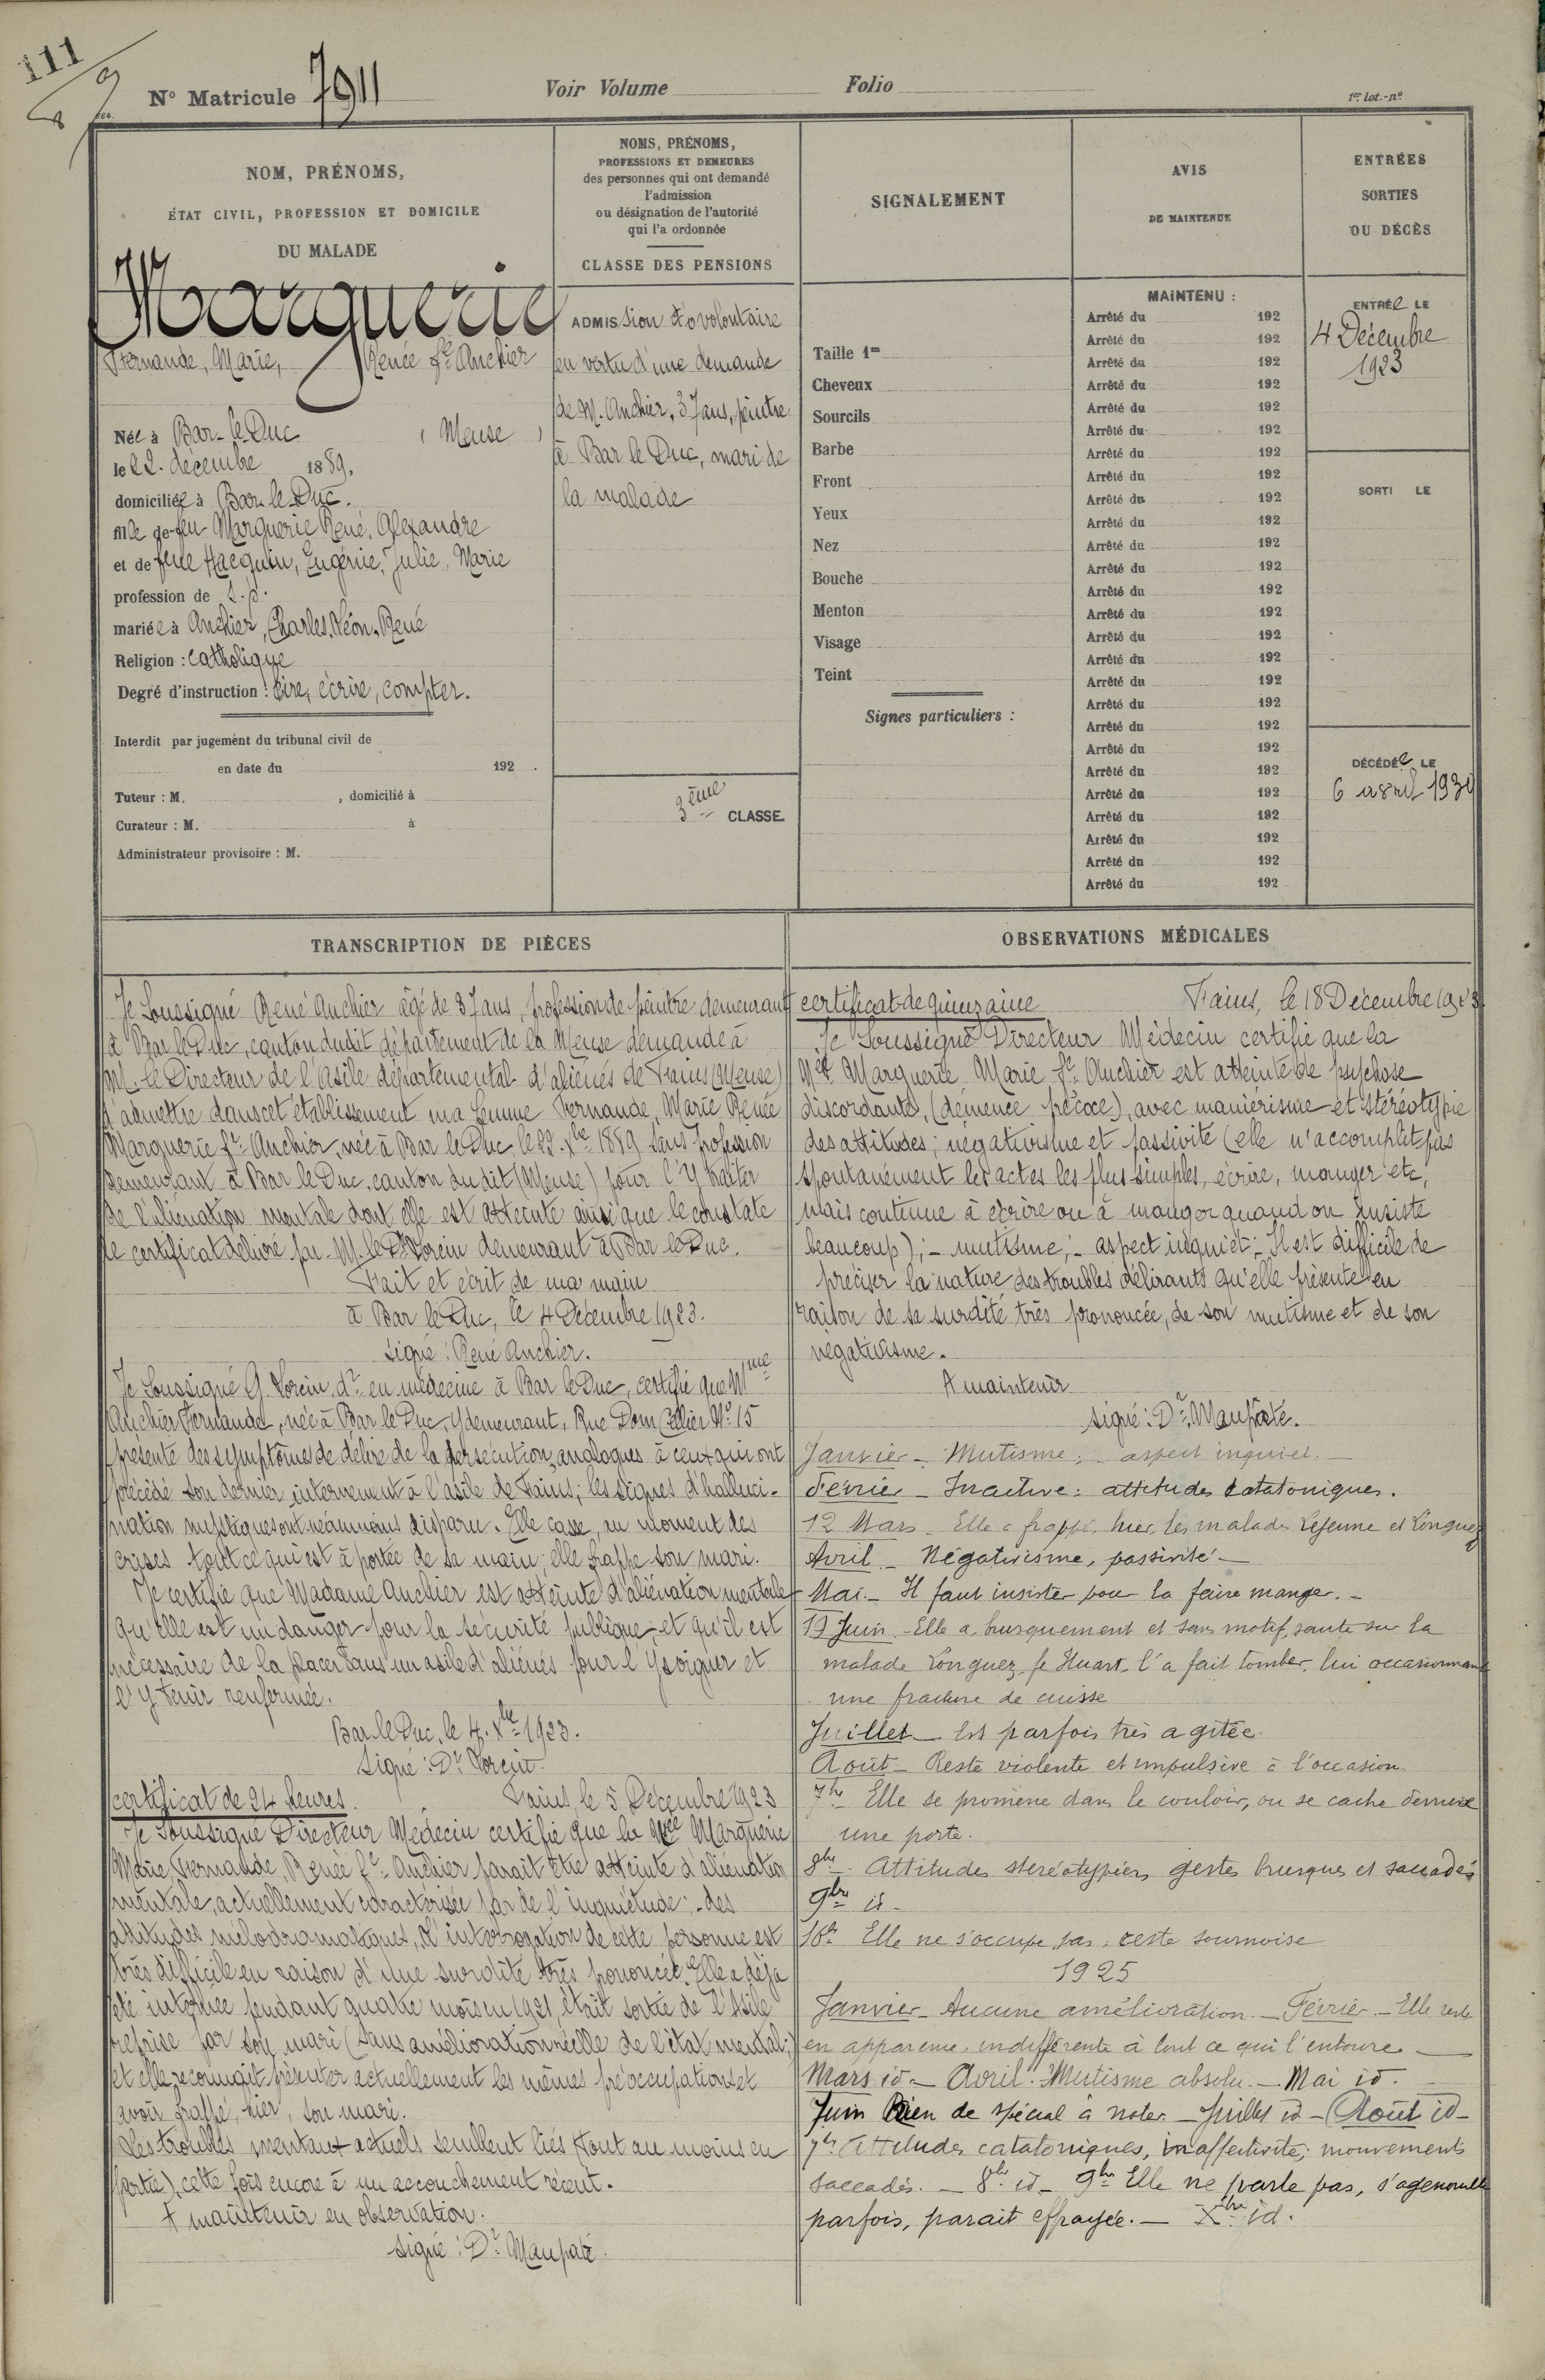 111
N° Matricule 7911
Voir Volume
Folio
1er lot.-n°
NOM, PRÉNOMS,
ÉTAT CIVIL, PROFESSION ET DOMICILE
DU MALADE
Marguerie
Fernande, Marie, Renée fe Anchier
Née à Bar-le-Duc (Meuse)
le 22 décembre 1889.
domiciliée à Bar-le-Duc.
fille de feu Marguerie René, Alexandre
et de feue Hacquin, Eugénie, Julie, Marie
profession de s.p.
mariée à Anchier, Charles, Léon, René
Religion : Catholique
Degré d'instruction : lire, écrire, compter.
Interdit par jugement du tribunal civil de
en date du 192 .
Tuteur : M. , domicilié à
Curateur : M. à
Administrateur provisoire : M.
NOMS, PRÉNOMS,
PROFESSIONS ET DEMEURES
des personnes qui ont demandé
l'admission
ou désignation de l'autorité
qui l'a ordonnée
CLASSE DES PENSIONS
ADMISsion volontaire
en vertu d'une demande
de M. Anchier, 37 ans, peintre
à Bar le Duc, mari de
la malade
3ème CLASSE
SIGNALEMENT
Taille 1m
Cheveux
Sourcils
Barbe
Front
Yeux
Nez
Bouche
Menton
Visage
Teint
Signes particuliers :
AVIS
DE MAINTENUE
MAINTENU :
Arrêté du 192
Arrêté du 192
Arrêté du 192
Arrêté du 192
Arrêté du 192
Arrêté du 192
Arrêté du 192
Arrêté du 192
Arrêté du 192
Arrêté du 192
Arrêté du 192
Arrêté du 192
Arrêté du 192
Arrêté du 192
Arrêté du 192
Arrêté du 192
Arrêté du 192
Arrêté du 192
Arrêté du 192
Arrêté du 192
Arrêté du 192
Arrêté du 192
Arrêté du 192
Arrêté du 192
Arrêté du 192
Arrêté du 192
ENTRÉES
SORTIES
OU DÉCÈS
ENTRÉe LE
4 Décembre
1923
SORTI LE
DÉCÉDÉe LE
6 avril 1930
TRANSCRIPTION DE PIÈCES
Je Soussigné René Anchier âgé de 37 ans, profession de peintre demeurant
à Bar le Duc, canton dudit département de la Meuse demande à
M. le Directeur de l'Asile départemental d'aliénés de Fains (Meuse)
d'admettre dans cet établissement ma femme Fernande, Marie Renée
Marguerie fe Anchier, née à Bar le Duc, le 22 Xbre 1889 sans profession
demeurant à Bar le Duc, canton du dit (Meuse) pour l'y traiter
de l'aliénation mentale dont elle est atteinte ainsi que le constate
le certificat délivré par M. le Dr Vorein demeurant à Bar le Duc.
Fait et écrit de ma main
à Bar le Duc, le 4 Décembre 1923.
Signé : René Anchier.
Je Soussigné G. Vorein, dr en médecine à Bar le Duc, certifie que Mme
Anchier Fernande, née à Bar le Duc, y demeurant, Rue Dom Cellier N° 15
présente des symptômes de délire de la persécution, analogues à ceux qui ont
précédé son dernier internement à l'asile de Fains; les signes d'halluci-
nation mystiques ont néanmoins disparu. Elle casse, au moment des
crises tout ce qui est à portée de sa main; elle frappe son mari.
Je certifie que Madame Anchier est atteinte d'aliénation mentale
qu'elle est un danger pour la sécurité publique, et qu'il est
nécessaire de la placer dans un asile d'aliénés pour l'y soigner et
l'y tenir renfermée.
Bar le Duc, le 4 Xbre 1923.
Signé : Dr Vorein.
certificat de 24 heures. Fains, le 5 Décembre 1923
Je Soussigné Directeur Médecin certifie que la Née Marguerie
Marie Fernande, Renée fe Anchier parait être atteinte d'aliénation
mentale, actuellement caractérisée par de l'inquiétude; - des
attitudes mélodramatiques, l'interrogation de cette personne est
très difficile en raison d'une surdité très prononcée. Elle a déjà
été internée pendant quatre mois en 1921, était sortie de l'Asile
reprise par son mari (sans amélioration réelle de l'état mental;)
et elle reconnait présenter actuellement les mêmes préoccupations et
avoir frappé, hier, son mari.
Les troubles mentaux actuels semblent liés (tout au moins en
partie), cette fois encore à un accouchement récent.
A maintenir en observation.
Signé : Dr Maupaté.
OBSERVATIONS MÉDICALES
certificat de quinzaine Fains, le 18 Décembre 1923
Je Soussigné Directeur Médecin certifie que la
Née Marguerie Marie fe Anchier est atteinte de psychose
discordante, (démence précoce), avec maniérisme et stéréotypie
des attitudes; négativisme et passivité (elle n'accomplit pas
spontanément les actes les plus simples, écrire, manger etc,
mais continue à écrire ou à manger quand on insiste
beaucoup); - mutisme; - aspect inquiet; - Il est difficile de
préciser la nature des troubles délirants qu'elle présente en
raison de sa surdité très prononcée, de son mutisme et de son
négativisme.
A maintenir
signé : Dr Maupaté.
Janvier - Mutisme; - aspect inquiet. -
Février - Inactive : attitudes catatoniques.
12 Mars - Elle a frappé, hier, les malades Lejeune et Longuez
Avril - Négativisme, passivité -
Mai. - Il faut insister pour la faire manger. -
19 Juin. - Elle a, brusquement et sans motif, sauté sur la
malade Longuez fe Huart, l'a fait tomber, lui occasionnant
une fracture de cuisse
Juillet - Est parfois très agitée.
Août - Reste violente et impulsive à l'occasion.
7bre - Elle se promène dans le couloir, ou se cache derrière
une porte.
8bre - Attitudes stéréotypées, gestes brusques et saccadés
9bre id -
10bre Elle ne s'occupe pas, reste sournoise
1925
Janvier - Aucune amélioration. - Février. - Elle reste
en apparence, indifférente à tout ce qui l'entoure -
Mars id - Avril : Mutisme absolu. - Mai id.
Juin Rien de spécial à noter. - Juillet id - Août id -
7bre Attitudes catatoniques, inaffectivité; mouvements
saccadés. - 8bre id - 9bre Elle ne parle pas, s'agenouille
parfois, parait effrayée. - Xbre id.